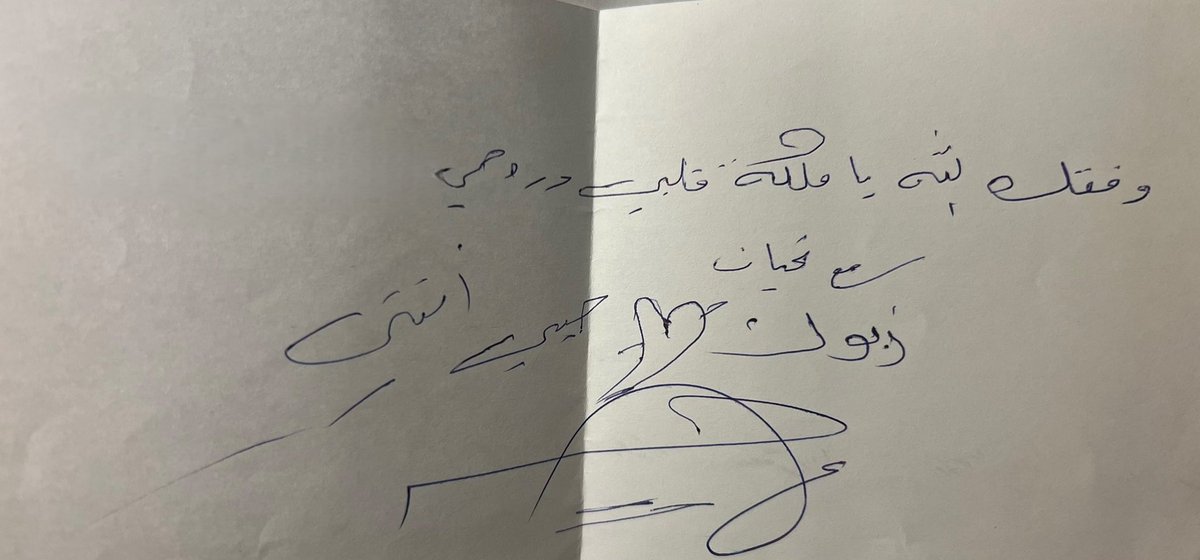 وفقك الله يا ملكة قلبي وروحي
مع تحيات
زبون حبيبي أنتي